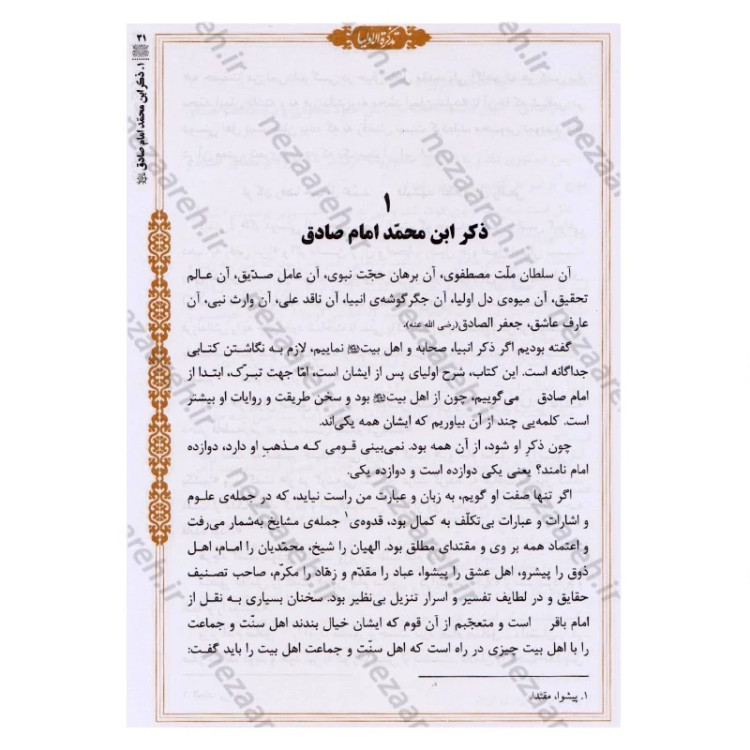 تذکرة الاولیا
۳۱
۱. ذکر ابن محمّد امام صادق
۱
ذکر ابن محمّد امام صادق
آن سلطان ملّت مصطفوی، آن برهان حجّت نبوی، آن عامل صدّیق، آن عالم
تحقیق، آن میوه‌ی دل اولیا، آن جگرگوشه‌ی انبیا، آن ناقد علی، آن وارث نبی، آن
عارف عاشق، جعفر الصادق(رضی الله عنه).
گفته بودیم اگر ذکر انبیا، صحابه و اهل بیت نماییم، لازم به نگاشتن کتابی
جداگانه است. این کتاب، شرح اولیای پس از ایشان است، امّا جهت تبرّک، ابتدا از
امام صادق می‌گوییم، چون از اهل بیت بود و سخن طریقت و روایات او بیشتر
است. کلمه‌یی چند از آن بیاوریم که ایشان همه یکی‌اند.
چون ذکرِ او شود، از آن همه بود. نمی‌بینی قومی که مذهبِ او دارد، دوازده
امام نامند؟ یعنی یکی دوازده است و دوازده یکی.
اگر تنها صفت او گویم، به زبان و عبارت من راست نیاید، که در جمله‌ی علوم
و اشارات و عبارات بی‌تکلّف به کمال بود، قدوه‌ی۱ جمله‌ی مشایخ به‌شمار می‌رفت
و اعتماد همه بر وی و مقتدای مطلق بود. الهیان را شیخ، محمّدیان را امام، اهل
ذوق را پیشرو، اهل عشق را پیشوا، عباد را مقدّم و زهّاد را مکرّم، صاحب تصنیف
حقایق و در لطایف تفسیر و اسرار تنزیل بی‌نظیر بود. سخنان بسیاری به نقل از
امام باقر است و متعجّبم از آن قوم که ایشان خیال بندند اهل سنّت و جماعت
را با اهل بیت چیزی در راه است که اهل سنّت و جماعت اهل بیت را باید گفت:
۱. پیشوا، مقتدا.
nezaareh.ir